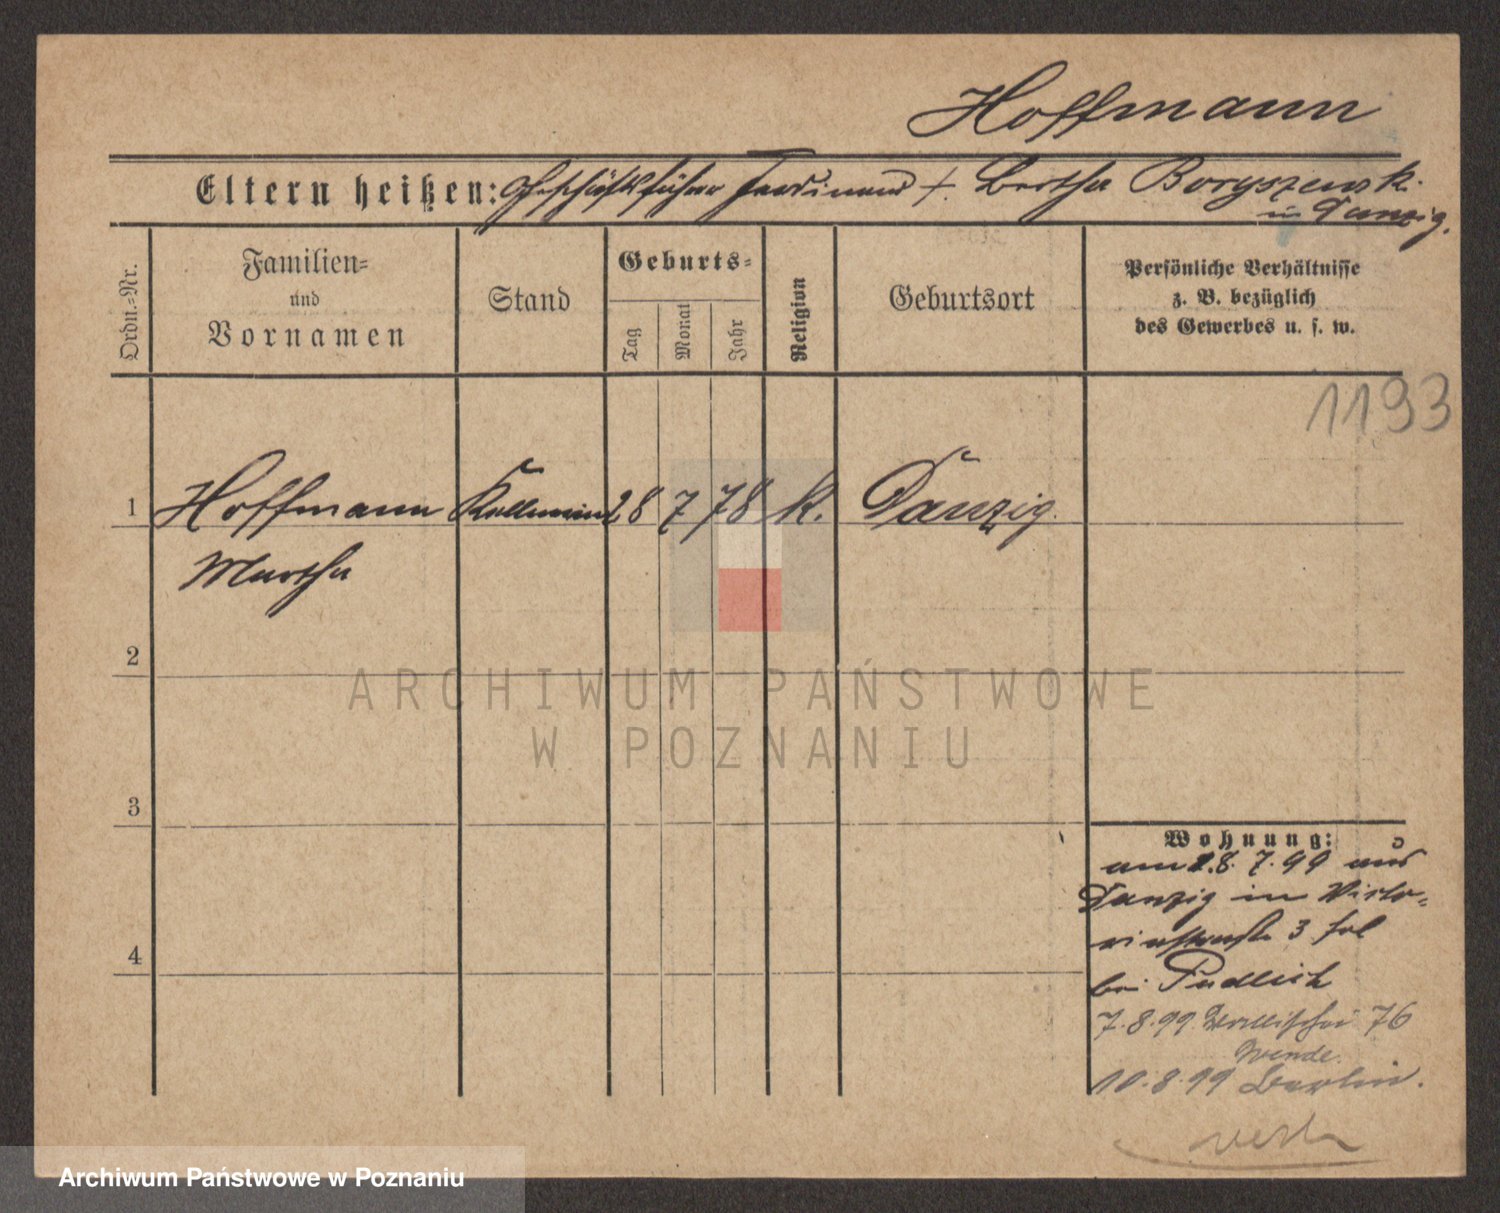 Hoffmann
Eltern heißen: Geschäftsführer Ferdinand + Bertha Boryszewsk.
in Danzig.
Ordn.-Nr.
Familien-
und
Vornamen
Stand
Geburts-
Tag
Monat
Jahr
Religion
Geburtsort
Persönliche Verhältnisse
z. B. bezüglich
des Gewerbes u. s. w.
1193
1 Hoffmann Kellnerin 28 7 78 k. Danzig.
Martha
2
ARCHIWUM PAŃSTWOWE
W POZNANIU
3
Wohnung:
am 28. 7. 99 aus
Danzig in Victo-
riastraße 3 hol
4
bei Pudlich
7. 8. 99 Wallischei 76
Wende.
10. 8. 99 Berlin.
Archiwum Państwowe w Poznaniu